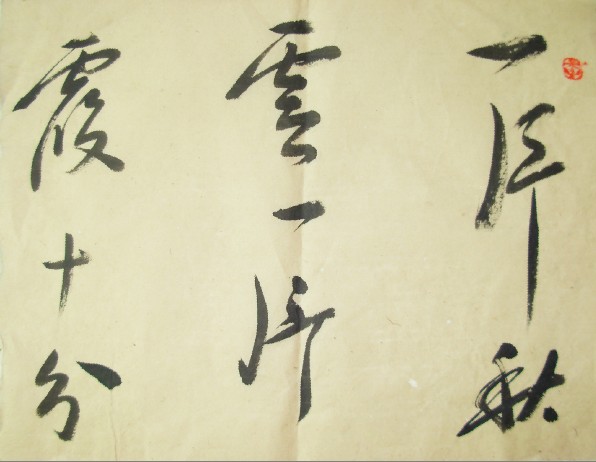 一片秋
雲一片
霞十分